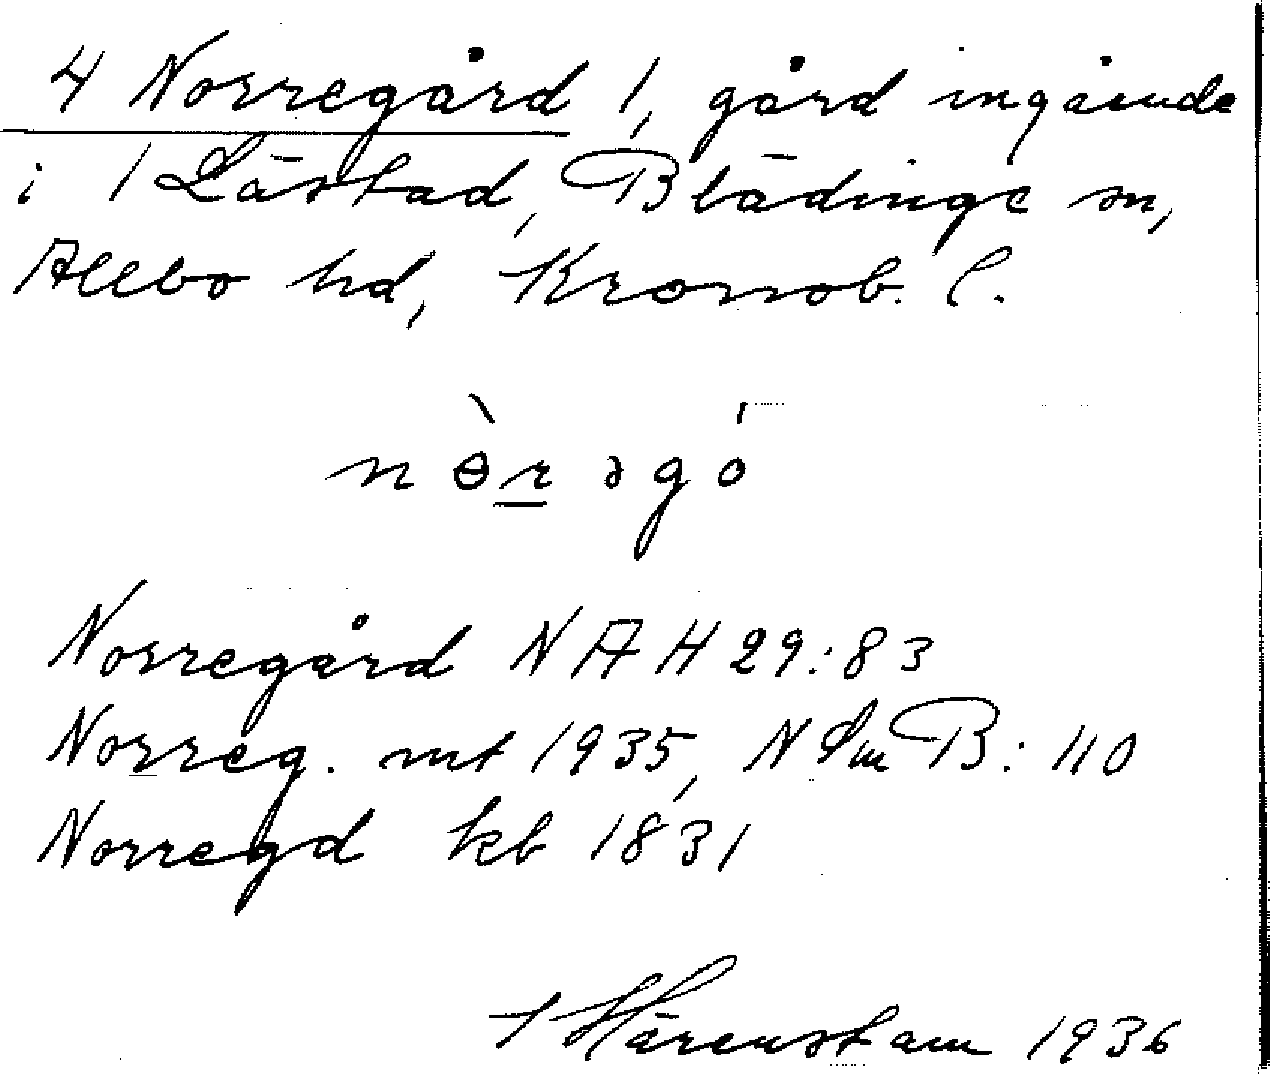 4 Norregård 1, gård ingående
i 1 Lästad, Blädinge sn,
Allbo hd, Kronob. l.
nɵ̀rəgó
Norregård NAH 29:83
Norreg. mt 1935, N Sm B: 110
Norregd kb 1831
Härenstam 1936